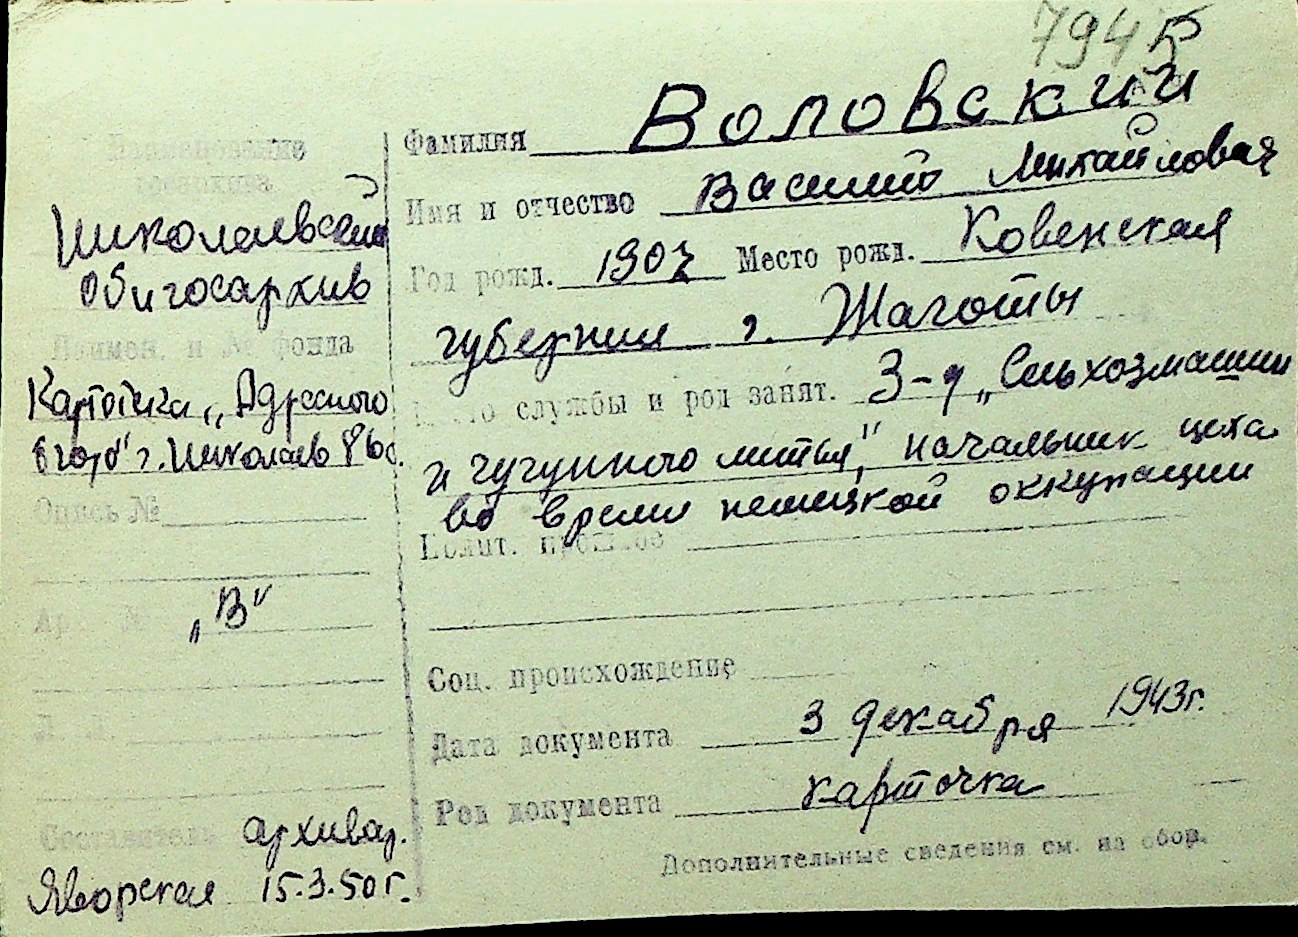 794
Фамилия Воловский
Имя и отчество Василий Михайлович
Год рожд. 1907 Место рожд. Ковенская
губернии г. Жаготы
службы и род занят. З-д „Сельхозмашин
и чугунного литья", начальник цеха
во время немецкой оккупации
Полит. прошлое
Соц. происхождение
Дата документа 3 декабря 1943г.
Род документа карточка
Дополнительные сведения см. на обор.
Наименование
госархива
Николаевский
Облгосархив
Наимен. и № фонда
Картотека „Адресного
бюро" г. Николаев
Опись №
Ар. №
„В"
Л. Л.
Составитель архивар.
Яворская 15.3.50г.